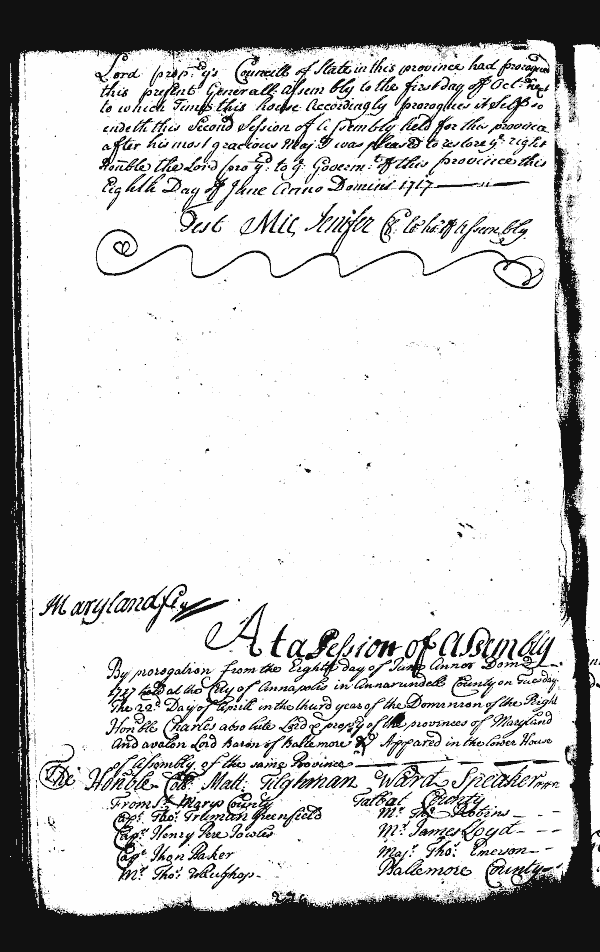 Lord prop:ry's Councill of State in this province had prorogued
this present Generall Assembly to the first day of Octr next
to which Time this house Accordingly prorogues it Self so
endeth this Second Session of Assembly held for this province
after his most gracious Maj:ty was pleased to restore ye right
Honble the Lord prop:ry to ye Governmt of this province this
Eighth Day of June Anno Domini 1717
Test Mic, Jenifer Cl: lo: hs: of Assembly
Maryland ss
At a Session of Assembly
By prorogation from the Eighth day of June Annoq Dom
1717 held at the City of Annapolis in Annarundell County on Tuesday
The 22d Day of Aprill in the third year of the Dominion of the Right
Honble Charles absolute Lord & propry of the provinces of Maryland
and avalon Lord Baron of Baltemore & Appeared in the lower House
of Assembly of the same Province
The Honble Coll: Matt: Tilghman Ward Speaker
From St Marys County Talbot County
Capt Tho: Truman Greenfield Mr Tho: Robins
Capt Henry Pere Jowles Mr James Loyd
Capt Jhon Baker Maj: Tho: Emerson
Mr Tho: Waughop Baltemore County